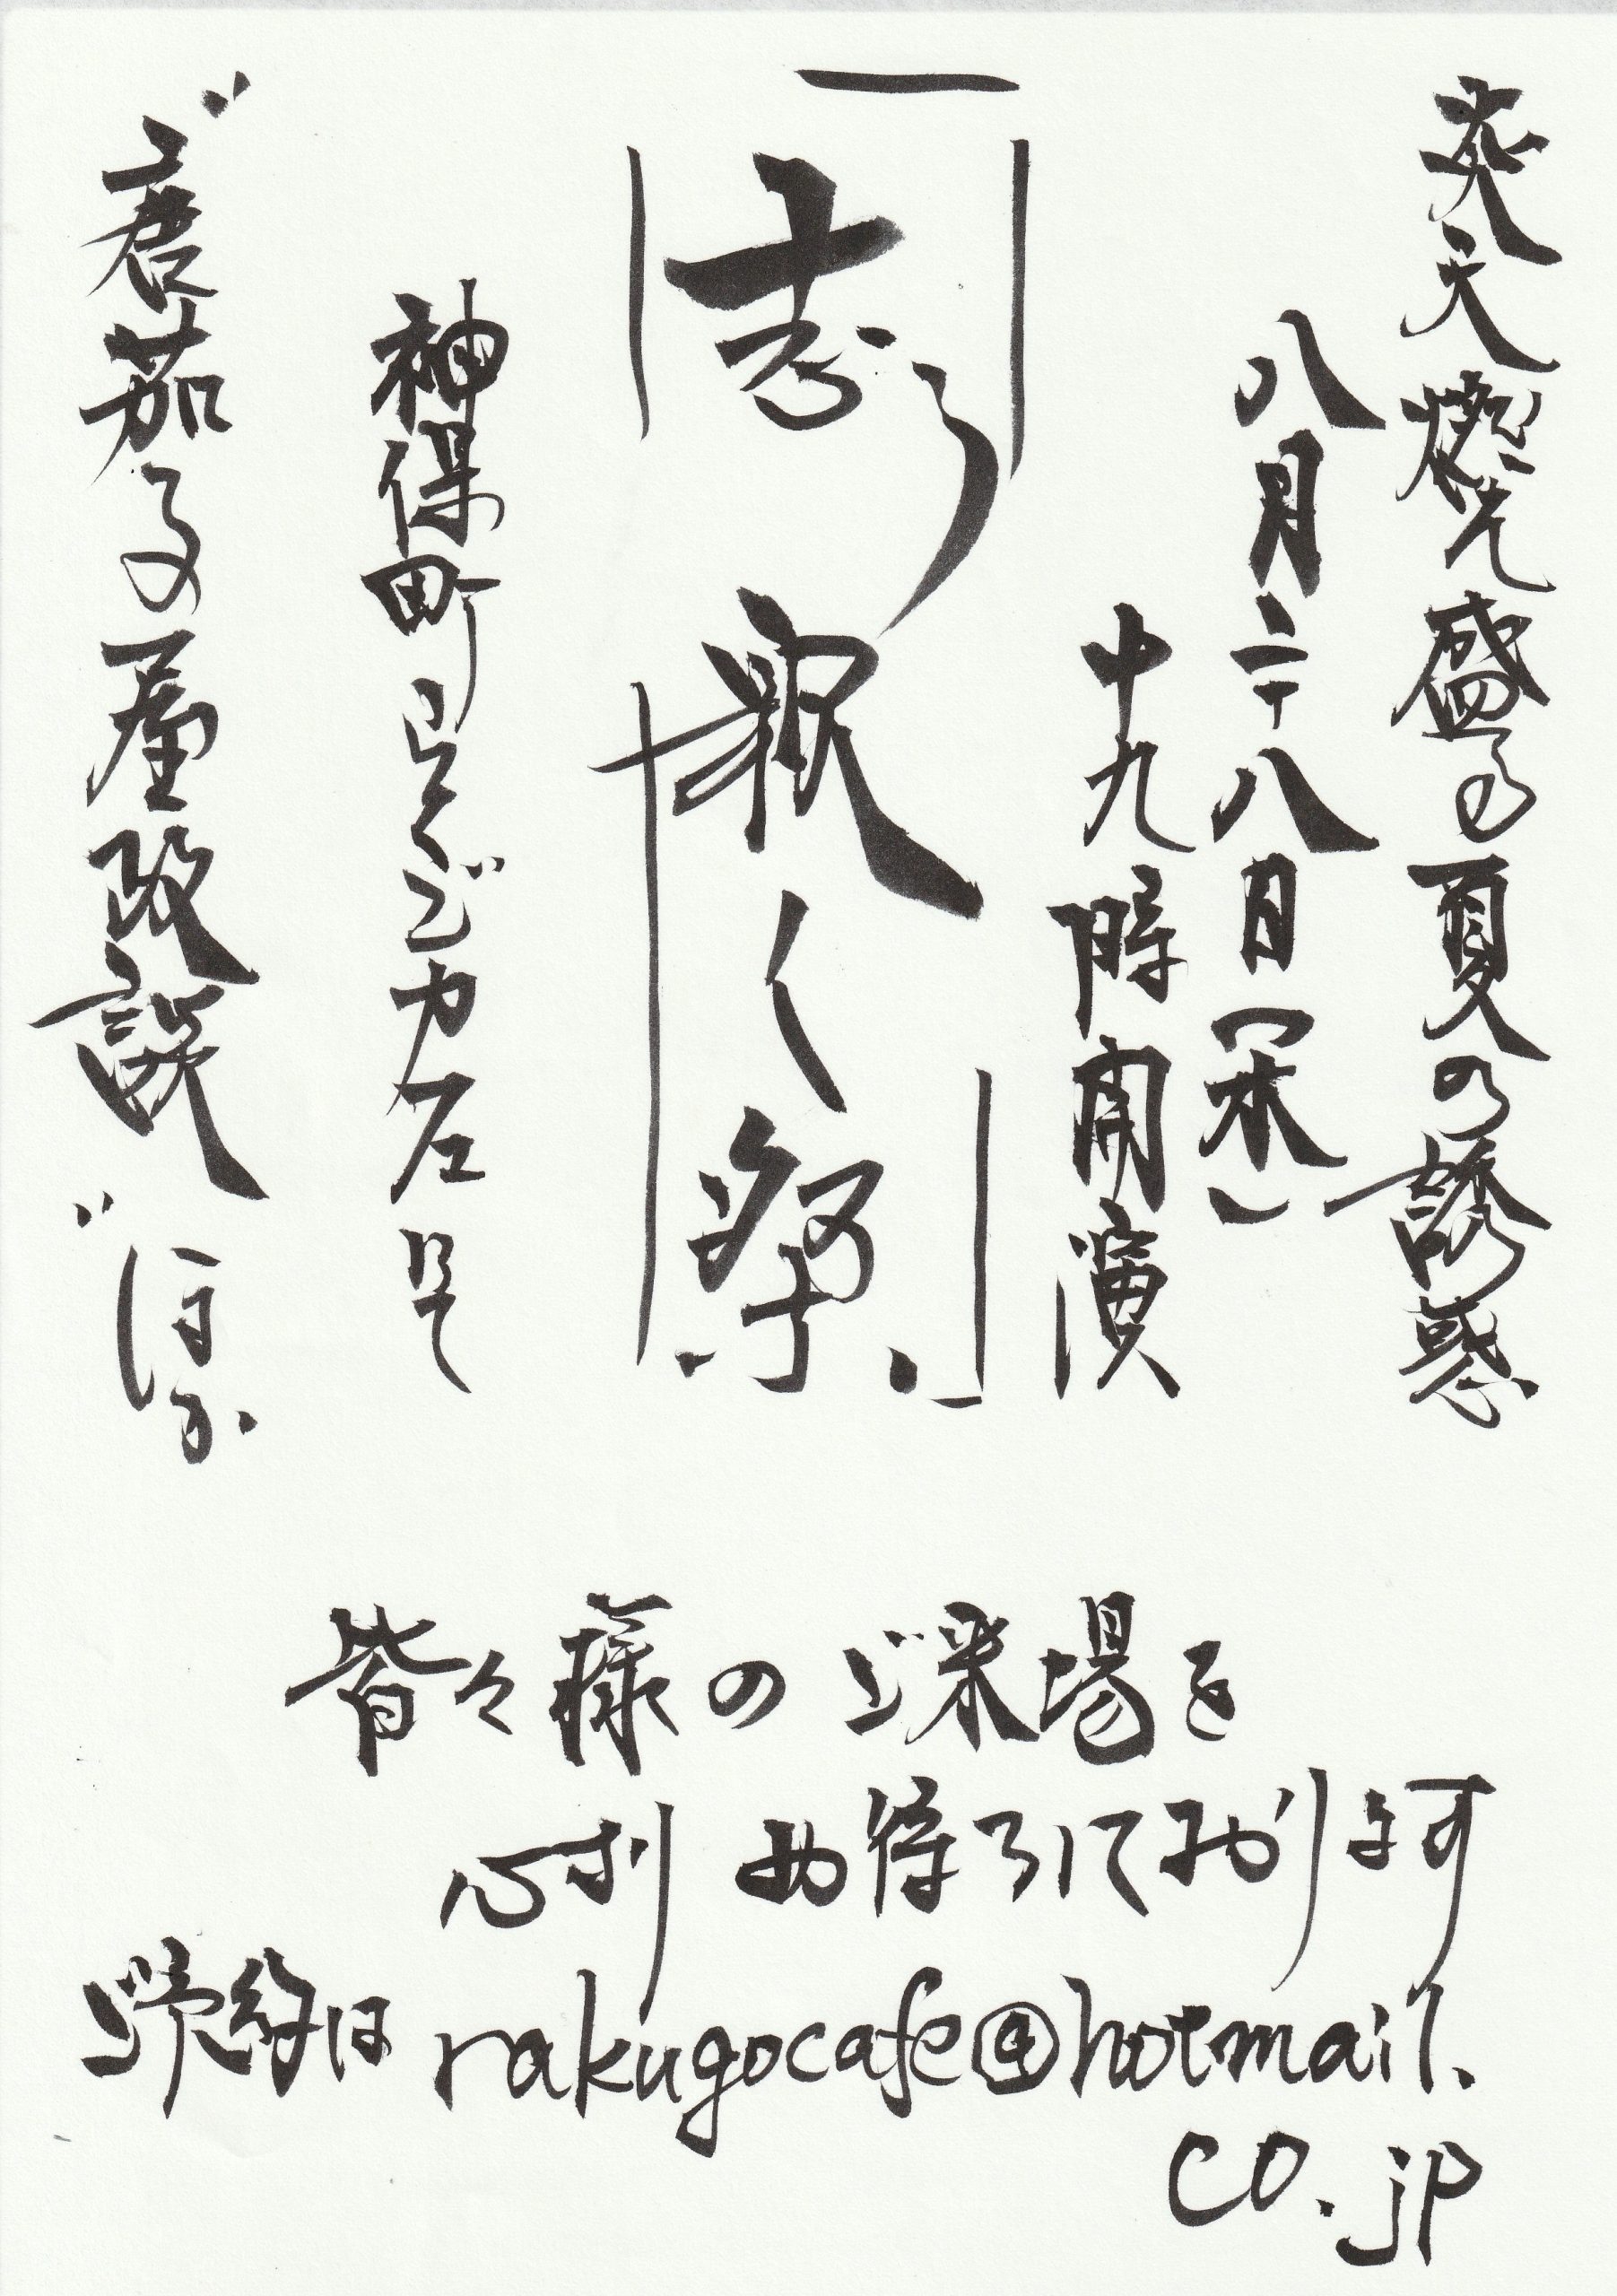 炎天燃え盛る夏の誘惑
八月二十八日(木)
十九時開演
神保町らくごカフェにて
"唐茄子屋政談"ほか
皆々様のご来場を
心よりお待ちしております
ご予約は rakugocafe@hotmail.
co.jp